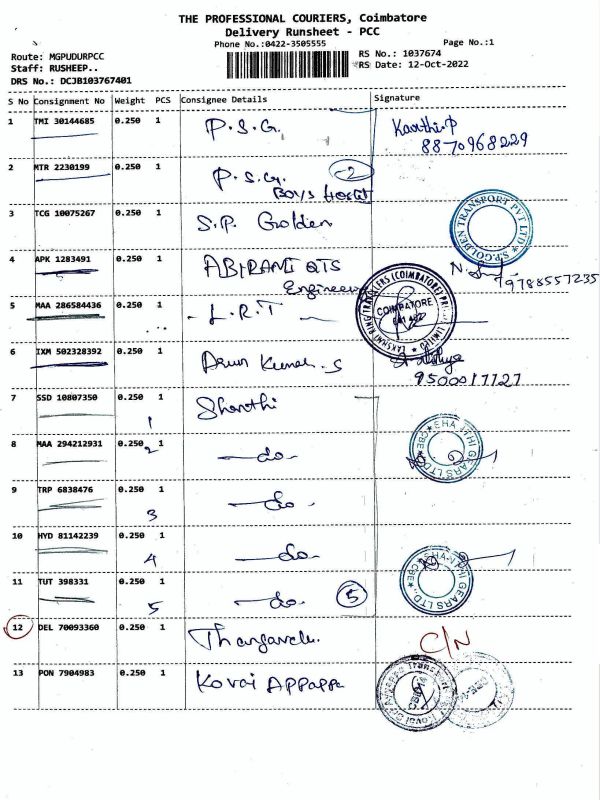 THE PROFESSIONAL COURIERS, Coimbatore
Delivery Runsheet - PCC
Phone No.:0422-3505555
Page No.:1
Route: MGPUDURPCC
Staff: RUSHEEP..
DRS No.: DCJB103767401
RS No.: 1037674
RS Date: 12-Oct-2022
S No Consignment No Weight PCS Consignee Details Signature
1 TMI 30144685 0.250 1 P.S.G. Karthi.P
8870968229
2 MTR 2230199 0.250 1 P.S.G. 2
Boys Hostel
3 TCG 10075267 0.250 1 S.P. Golden
S.P.GOLDEN TRANSPORT PVT LTD
4 APK 1283491 0.250 1 ABIRAMI QTS
Engineers
9788557235
5 MAA 286584436 0.250 1 - L.R.T -
LAKSHMI RING TRAVELLERS (COIMBATORE) PRIVATE LIMITED
COIMBATORE
641 402
6 IXM 502328392 0.250 1 Arun Kumar.S
9500017727
7 SSD 10807350 0.250 1 Shanthi
1
8 MAA 294212931 0.250 1 -do-
2
SHANTHI GEARS LTD., CBE
9 TRP 6838476 0.250 1 -do-
3
10 HYD 81142239 0.250 1 -do-
4
11 TUT 398331 0.250 1 -do- 5
5
SHANTHI GEARS LTD., CBE
12 DEL 70093360 0.250 1 Thangavelu C/N
13 PON 7904983 0.250 1 Kovai Appappa